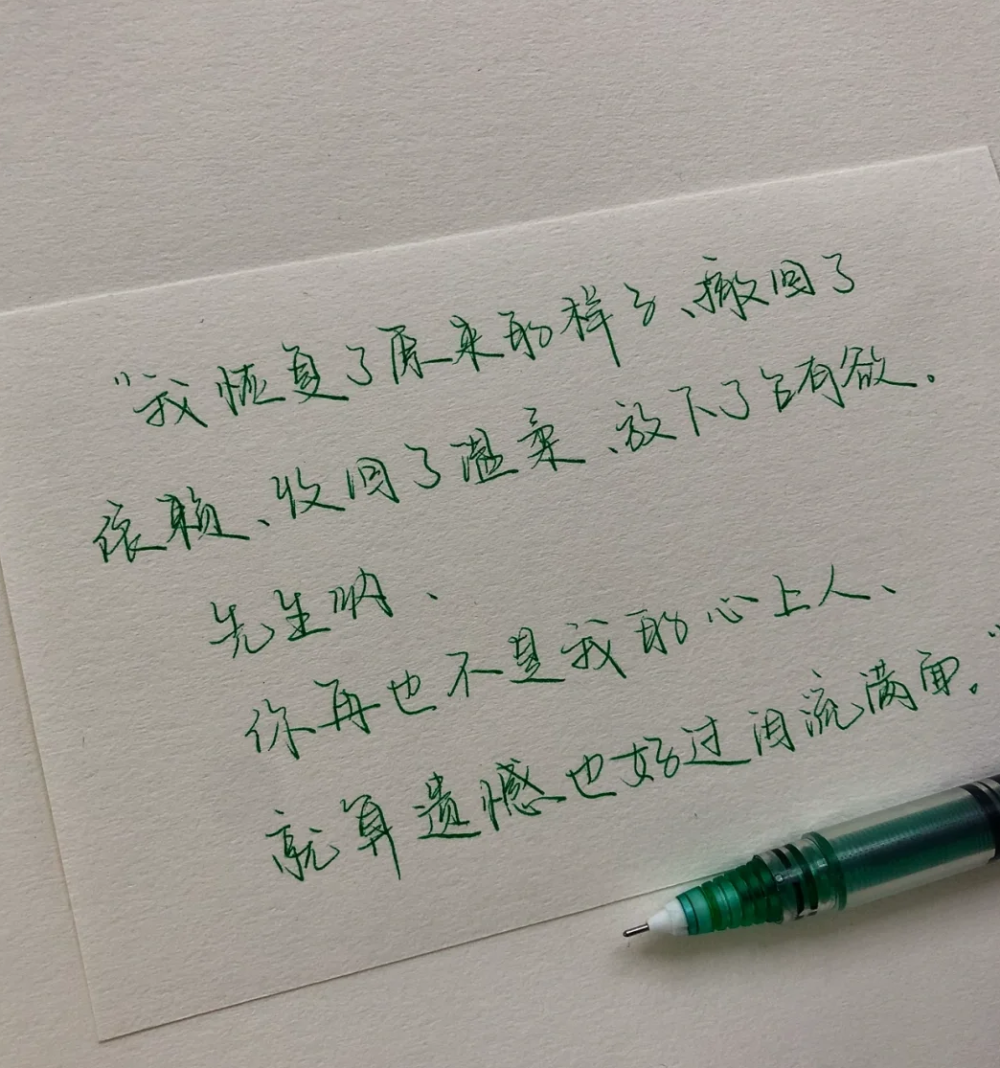 “我恢复了原来的样子、撤回了
依赖、收回了温柔、放下了占有欲。
先生呐、
你再也不是我的心上人、
就算遗憾也好过泪流满面。”